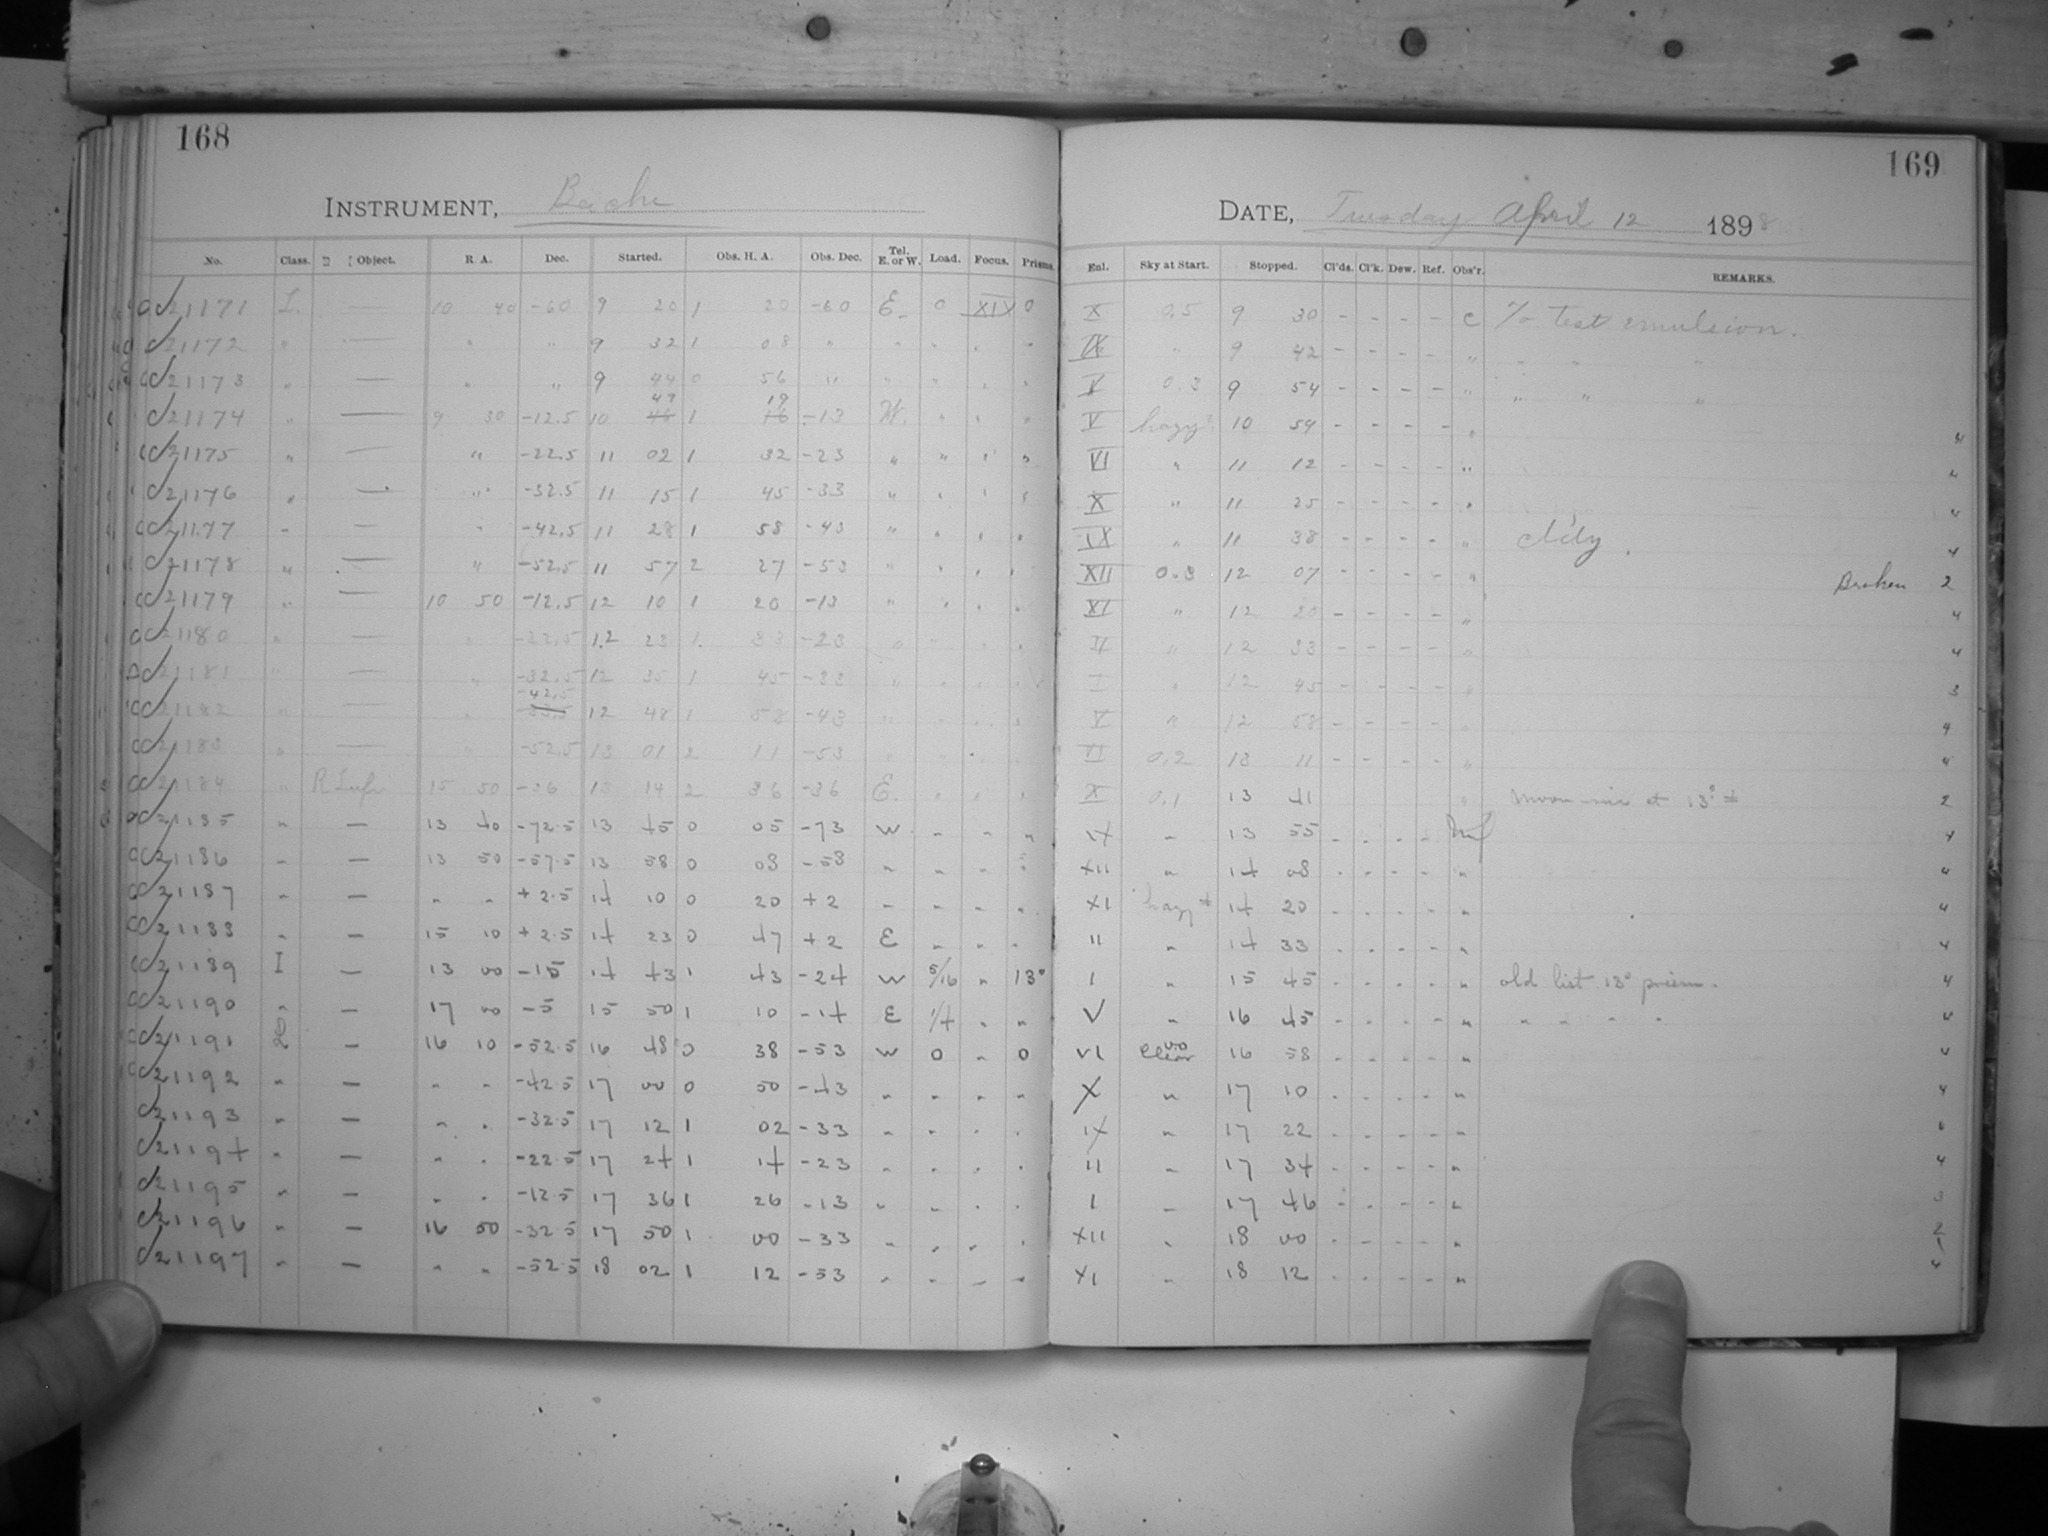 168
169
INSTRUMENT, Bache
DATE, Tuesday April 12 1898
No. Class. Object. R. A. Dec. Started. Obs. H. A. Obs. Dec. Tel. E. or W. Load. Focus. Prisms. Enl. Sky at Start. Stopped. Cl'ds. Cl'k. Dew. Ref. Obs'r. REMARKS.
21171 I. — 10 40 -60 9 20 1 20 -60 E. 0 XIV 0 X 0.5 9 30 - - - - C To test emulsion.
21172 " — " " 9 32 1 08 " " " " " IX " 9 42 - - - - " " " "
21173 " — " " 9 44 0 56 " " " " " V 0.3 9 54 - - - - " " " "
21174 " — 9 30 -12.5 10 47 1 19 -13 W. " " " V hazy 10 59 - - - - " 4
21175 " — " -22.5 11 02 1 32 -23 " " " " VI " 11 12 - - - - " 4
21176 " — " -32.5 11 15 1 45 -33 " " " " X " 11 25 - - - - " 4
21177 " — " -42.5 11 28 1 58 -43 " " " " IX " 11 38 - - - - " cl'dy. 4
21178 " — " -52.5 11 57 2 27 -53 " " " " XII 0.3 12 07 - - - - " Broken 2
21179 " — 10 50 -12.5 12 10 1 20 -13 " " " " XI " 12 20 - - - - " 4
21180 " — " -22.5 12 23 1 33 -23 " " " " II " 12 33 - - - - " 4
21181 " — " -32.5 12 35 1 45 -33 " " " " I " 12 45 - - - - " 3
21182 " — " -42.5 12 48 1 58 -43 " " " " V " 12 58 - - - - " 4
21183 " — " -52.5 13 01 2 11 -53 " " " " VI 0.2 13 11 - - - - " 4
21184 " R Lupi 15 50 -36 13 14 2 36 -36 E. " " " X 0.1 13 41 " Moon rise at 13h ± 2
21185 " — 13 40 -72.5 13 45 0 05 -73 W " " " IX " 13 55 - - - - 4
21186 " — 13 50 -57.5 13 58 0 08 -58 " " " " XII " 14 08 - - - - " 4
21187 " — " " +2.5 14 10 0 20 +2 " " " " XI hazy 14 20 - - - - " 4
21188 " — 15 10 +2.5 14 23 0 47 +2 E " " " II " 14 33 - - - - " 4
21189 I — 13 00 -15 14 43 1 43 -24 W 5/16 " 13° I " 15 45 - - - - " old list 13° prism. 4
21190 " — 17 00 -5 15 50 1 10 -14 E 1/4 " " V " 16 45 - - - - " " " " " 4
21191 — 16 10 -52.5 16 48 0 38 -53 W 0 " 0 VI clear 16 58 - - - - " 4
21192 " — " " -42.5 17 00 0 50 -43 " " " " X " 17 10 - - - - " 4
21193 " — " " -32.5 17 12 1 02 -33 " " " " IX " 17 22 - - - - "
21194 " — " " -22.5 17 24 1 14 -23 " " " " II " 17 34 - - - - " 4
21195 " — " " -12.5 17 36 1 26 -13 " " " " I " 17 46 - - - - " 3
21196 " — 16 50 -32.5 17 50 1 00 -33 " " " " XII " 18 00 - - - - " 2
21197 " — " " -52.5 18 02 1 12 -53 " " " " XI " 18 12 - - - - " 4